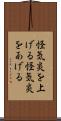 怪気炎を上
げる怪気炎
をあげる